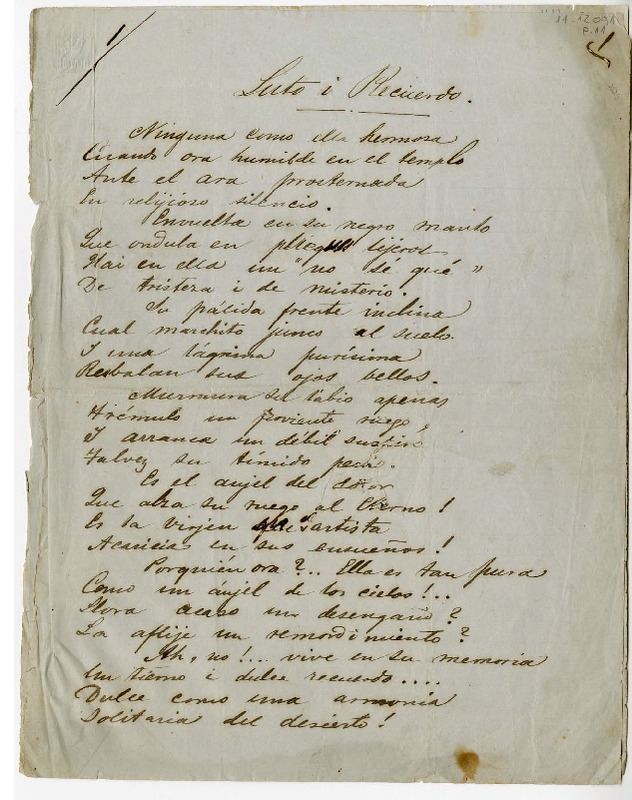 11-12091
p. 11
Luto i Recuerdo.
Ninguna como ella hermosa
Cuando ora humilde en el templo
Ante el ara prosternada
En relijioso silencio.
Envuelta en su negro manto
Que ondula en pliegues lijeros
Hai en ella un "no sé qué"
De tristeza i de misterio.
Su pálida frente inclina
Cual marchito junco al suelo
I una lágrima purísima
Resbalan sus ojos bellos.
Murmura su labio apenas
Trémulo un ferviente ruego,
I arranca un débil suspiro
Talvez su tímido pecho.
Es el anjel del dolor
Que alza su ruego al Eterno!
Es la virjen que artista
Acaricias en sus ensueños!
Porquién ora?.. Ella es tan pura
Como un ánjel de los cielos!..
Llora acaso un desengaño?
La aflije un remordimiento?
Ah, no!... vive en su memoria
Un tierno i dulce recuerdo....
Dulce como una armonía
Solitaria del desierto!